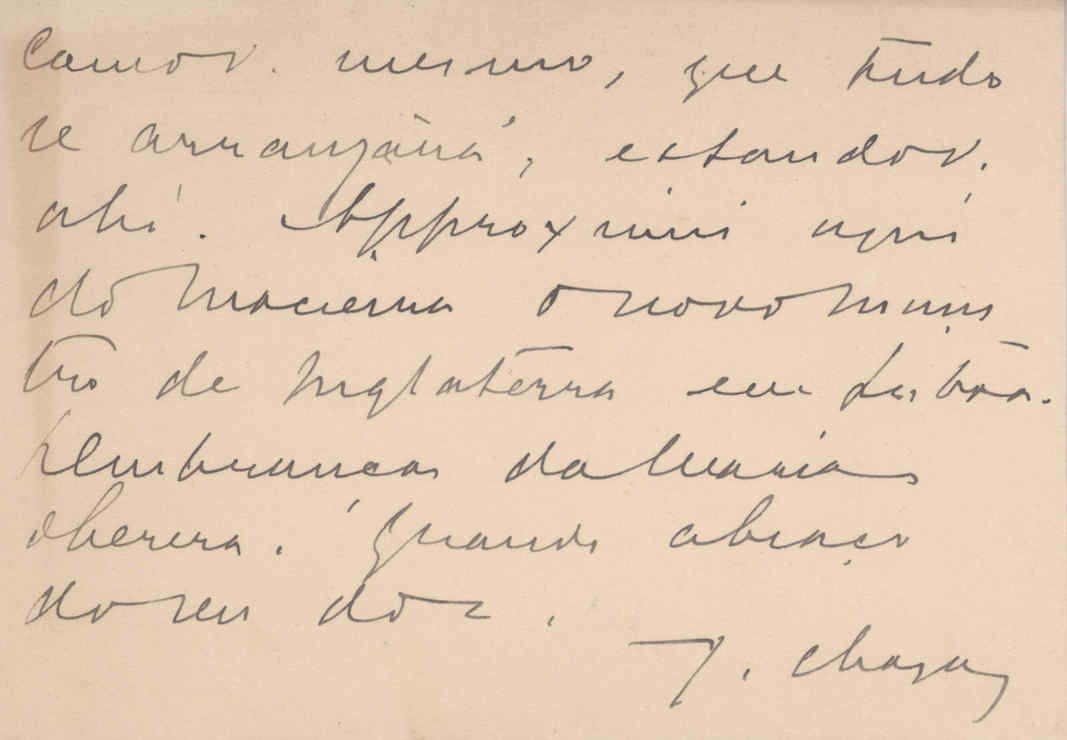 camos. mesmo, que tudo
se arranjará, estando v.
ahi. Approximei aqui
do Macieira o novo minis
tro de Inglaterra em Lisboa.
Lembranças da Maria
Thereza. Grande abraço
do seu
J. Chagas